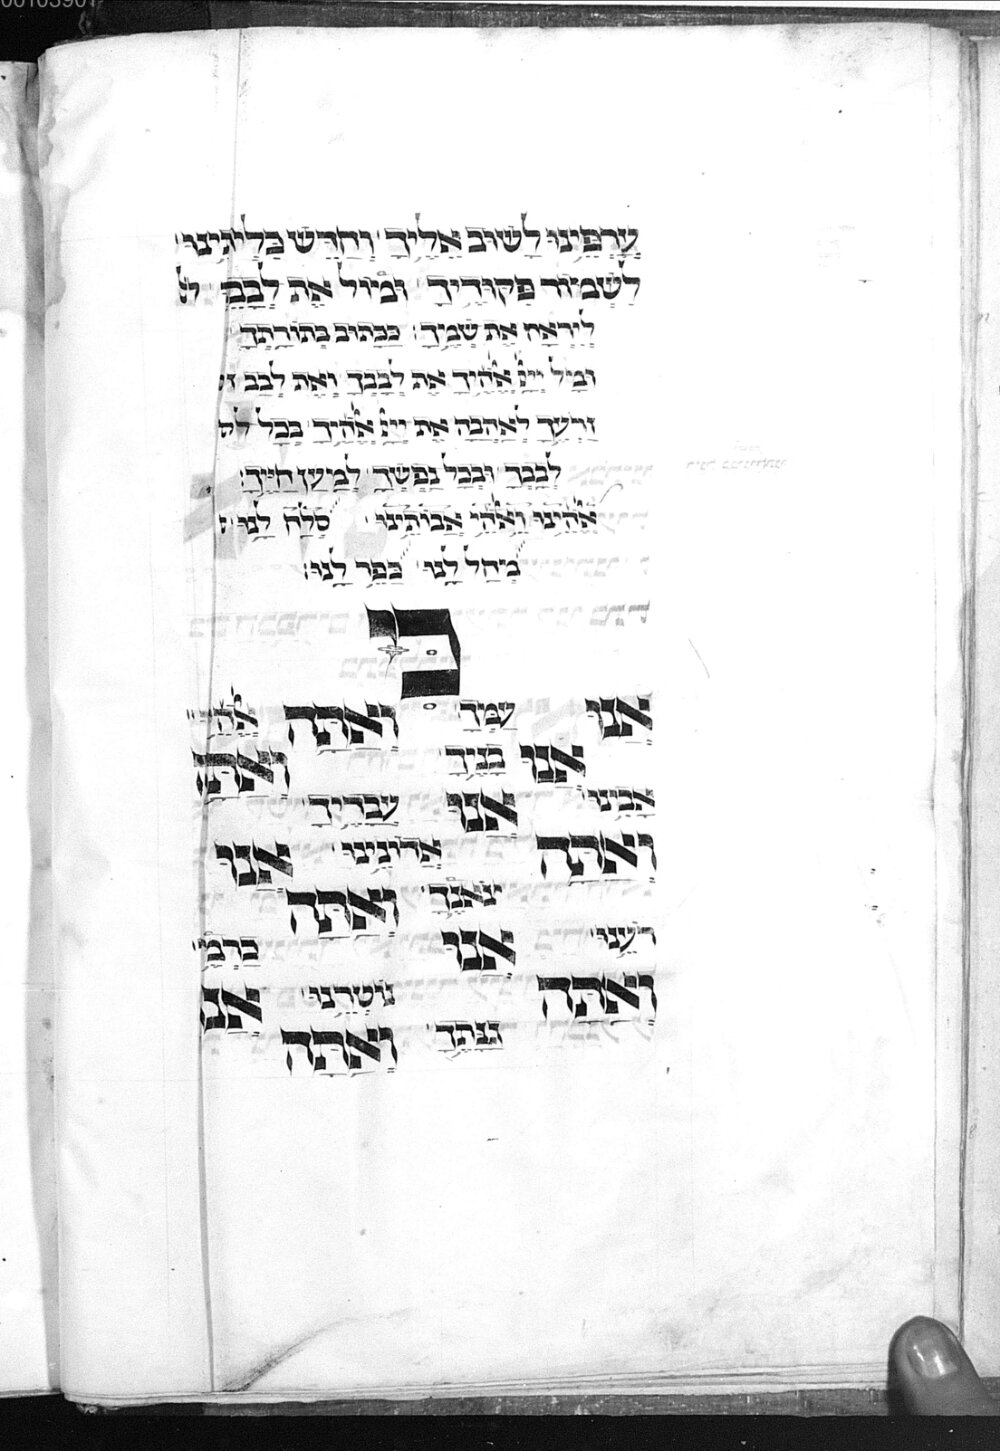 עָרְפֵּינוּ לָשׁוּב אֵלֶיךָ וְחַדֵּשׁ כִּלְיוֹתֵינוּ
לִשְׁמוֹר פִּקּוּדֶיךָ וּמוֹל אֶת לְבָבֵינוּ
לְיִרְאָה אֶת שְׁמֶךָ׃ כַּכָּתוּב בְּתוֹרָתֶךָ
וּמָל ייָ אֱלֹהֶיךָ אֶת לְבָבְךָ וְאֶת לְבַב
זַרְעֶךָ לְאַהֲבָה אֶת ייָ אֱלֹהֶיךָ בְּכָל
לְבָבְךָ וּבְכָל נַפְשְׁךָ לְמַעַן חַיֶּיךָ׃
אֱלֹהֵינוּ וֵאלֹהֵי אֲבוֹתֵינוּ סְלַח לָנוּ
מְחַל לָנוּ כַּפֵּר לָנוּ׃
כִּי
אָנוּ עַמֶּךָ וְאַתָּה אֱלֹהֵינוּ
אָנוּ בָנֶיךָ וְאַתָּה
אָבִינוּ אָנוּ עֲבָדֶיךָ
וְאַתָּה אֲדוֹנֵינוּ אָנוּ
צֹאנֶךָ וְאַתָּה
רֹעֵנוּ אָנוּ כַרְמֶךָ
וְאַתָּה נוֹטְרֵנוּ אָנוּ
גִנָּתֶךָ וְאַתָּה